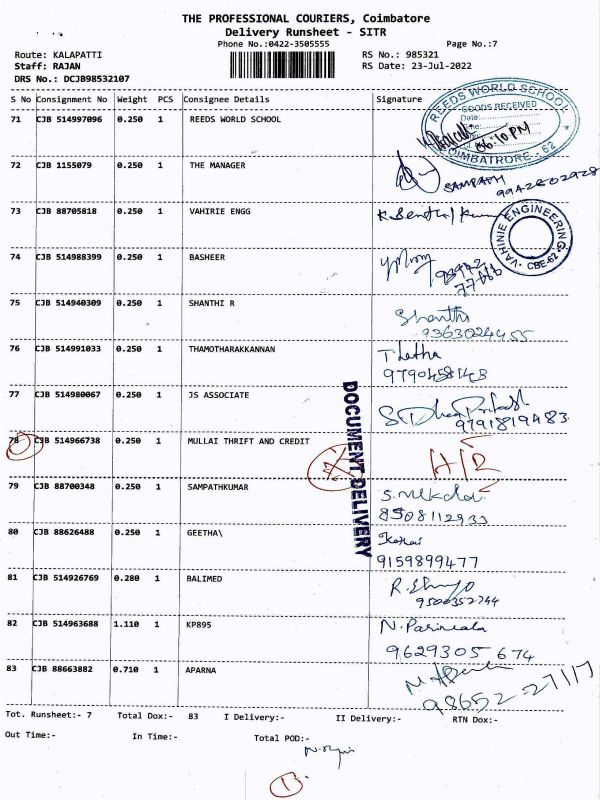 THE PROFESSIONAL COURIERS, Coimbatore
Delivery Runsheet - SITR
Phone No.:0422-3505555 Page No.:7
Route: KALAPATTI RS No.: 985321
Staff: RAJAN RS Date: 23-Jul-2022
DRS No.: DCJB98532107
S No Consignment No Weight PCS Consignee Details Signature
71 CJB 514997096 0.250 1 REEDS WORLD SCHOOL
REEDS WORLD SCHOOL
GOODS RECEIVED
Date:
06:10 PM
COIMBATRORE - 62
72 CJB 1155079 0.250 1 THE MANAGER
SAMPATH
9942602928
73 CJB 88705818 0.250 1 VAHIRIE ENGG
VAHINIE ENGINEERING
CBE-62
74 CJB 514988399 0.250 1 BASHEER
75 CJB 514940309 0.250 1 SHANTHI R
Shanthi
9363024455
76 CJB 514991033 0.250 1 THAMOTHARAKKANNAN
T. Latha
9790458148
77 CJB 514980067 0.250 1 JS ASSOCIATE
9791819483
78 CJB 514966738 0.250 1 MULLAI THRIFT AND CREDIT
DOCUMENT DELIVERY
79 CJB 88700348 0.250 1 SAMPATHKUMAR
8508112933
80 CJB 88626488 0.250 1 GEETHA\
9159899477
81 CJB 514926769 0.280 1 BALIMED
9500352744
82 CJB 514963688 1.110 1 KP895
9629305 674
83 CJB 88663882 0.710 1 APARNA
98652-27117
Tot. Runsheet:- 7 Total Dox:- 83 I Delivery:- II Delivery:- RTN Dox:-
Out Time:- In Time:- Total POD:-
1